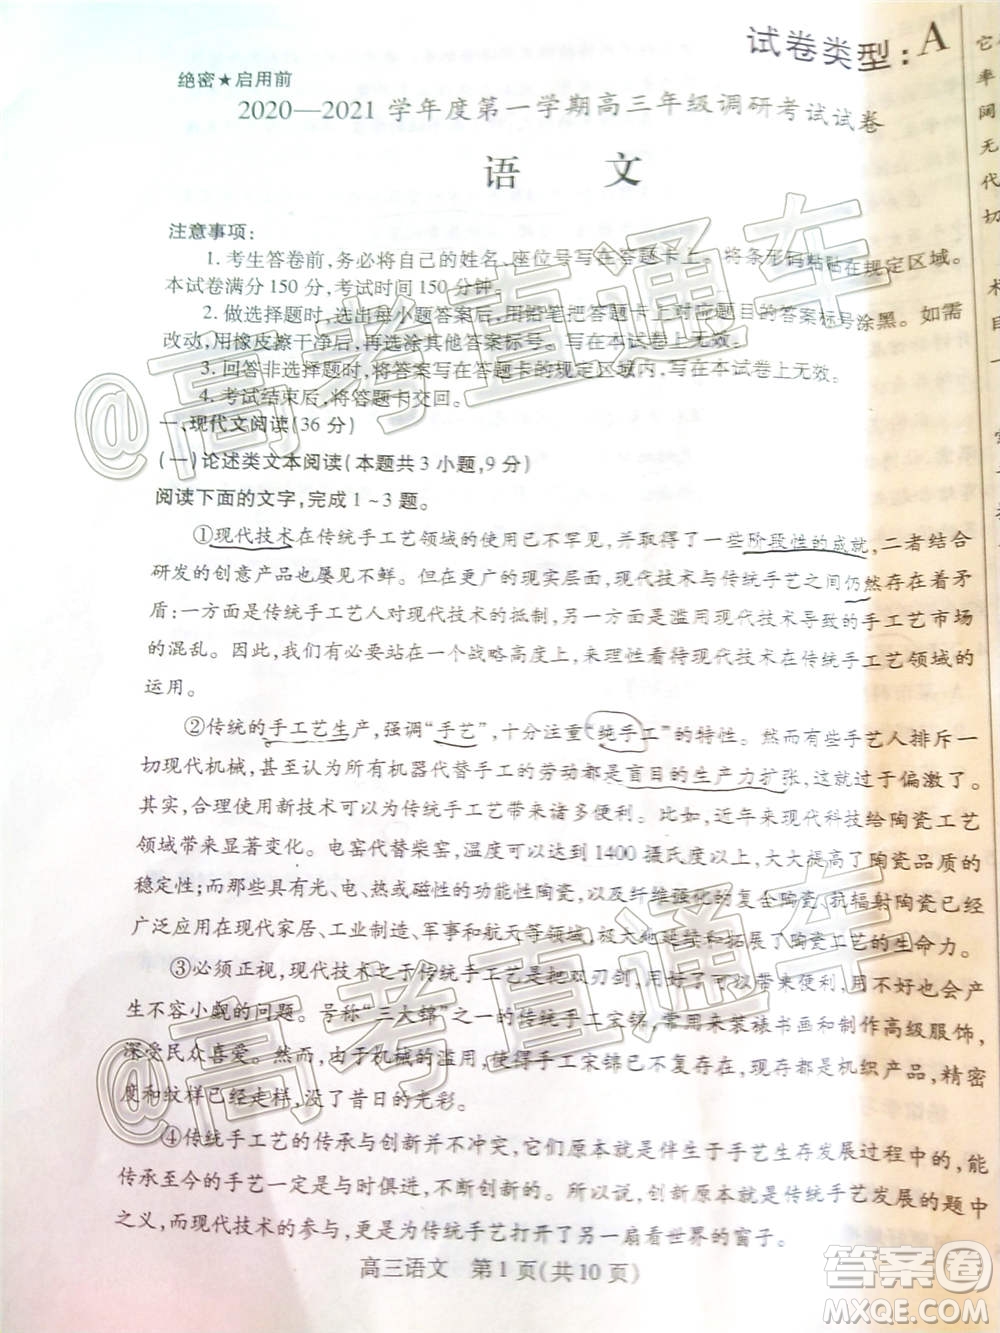 试卷类型：A
绝密★启用前
2020—2021学年度第一学期高三年级调研考试试卷
语 文
注意事项：
1. 考生答卷前，务必将自己的姓名、座位号写在答题卡上。将条形码粘贴在规定区域。
本试卷满分150分，考试时间150分钟。
2. 做选择题时，选出每小题答案后，用铅笔把答题卡上对应题目的答案标号涂黑。如需
改动，用橡皮擦干净后，再选涂其他答案标号。写在本试卷上无效。
3. 回答非选择题时，将答案写在答题卡的规定区域内，写在本试卷上无效。
4. 考试结束后，将答题卡交回。
一、现代文阅读(36分)
(一)论述类文本阅读(本题共3小题，9分)
阅读下面的文字，完成1~3题。
①现代技术在传统手工艺领域的使用已不罕见，并取得了一些阶段性的成就，二者结合
研发的创意产品也屡见不鲜。但在更广的现实层面，现代技术与传统手艺之间仍然存在着矛
盾：一方面是传统手工艺人对现代技术的抵制，另一方面是滥用现代技术导致的手工艺市场
的混乱。因此，我们有必要站在一个战略高度上，来理性看待现代技术在传统手工艺领域的
运用。
②传统的手工艺生产，强调“手艺”，十分注重“纯手工”的特性。然而有些手艺人排斥一
切现代机械，甚至认为所有机器代替手工的劳动都是盲目的生产力扩张，这就过于偏激了。
其实，合理使用新技术可以为传统手工艺带来诸多便利。比如，近年来现代科技给陶瓷工艺
领域带来显著变化。电窑代替柴窑，温度可以达到1400摄氏度以上，大大提高了陶瓷产品的
稳定性；而那些具有光、电、热或磁性的功能性陶瓷，以及纤维强化的复合陶瓷、抗辐射陶瓷已经
广泛应用在现代家居、工业制造、军事和航天等领域，极大地丰富和拓展了陶瓷工艺的生命力。
③必须正视，现代技术之于传统手工艺是把双刃剑，用好了可以锦上添花，用不好也会产
生不容小觑的问题。号称“三大锦”之一的传统手工宋锦，常用来装裱书画和制作高级服饰，
深受民众喜爱。然而，由于机械的滥用，使得手工宋锦已不复存在，现存都是机织产品，精密
度和纹样已经走样，没了昔日的光彩。
④传统手工艺的传承与创新并不冲突，它们原本就是伴生于手艺生存发展过程中的，能
传承至今的手艺一定是与时俱进，不断创新的。所以说，创新原本就是传统手艺发展的题中
之义，而现代技术的参与，更是为传统手艺打开了另一扇看世界的窗子。
高三语文　第1页(共10页)
@高考直通车
@高考直通车
答案圈
MXQE.COM
它
率
阔
无
代
切